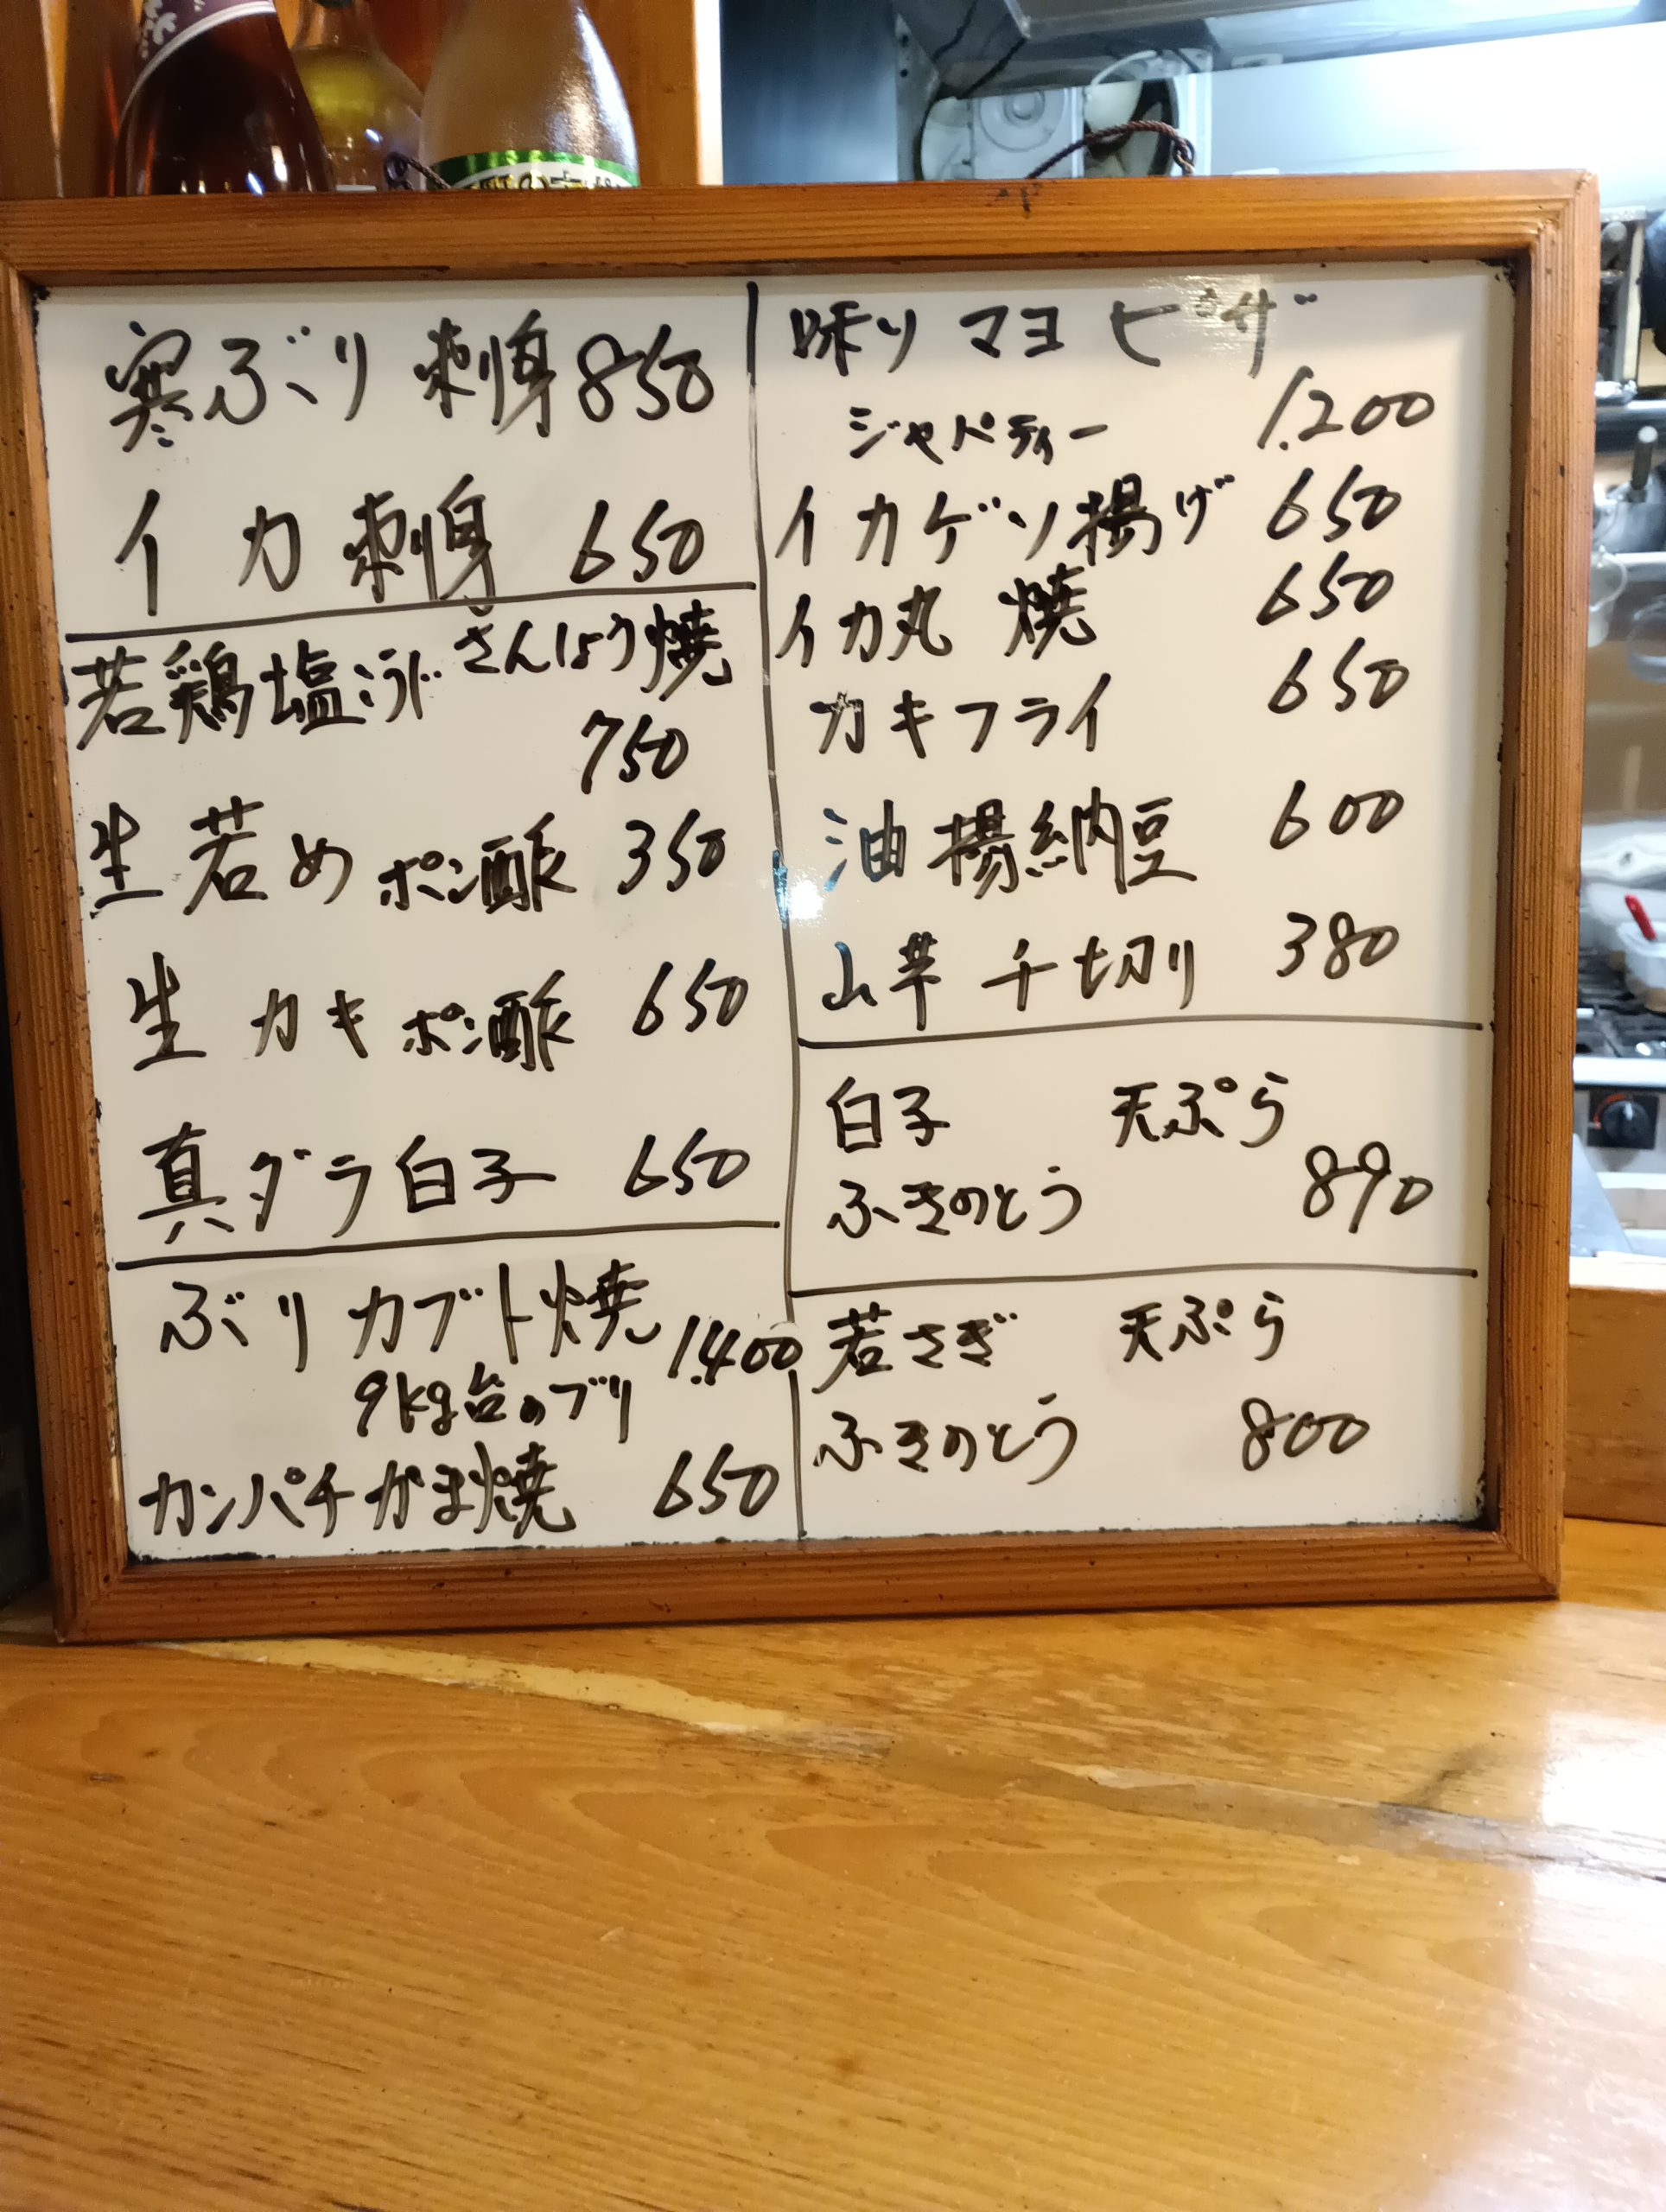 寒ぶり 刺身 850
イカ 刺身 650
若鶏塩こうじ さんしょう焼
750
生若め ポン酢 350
生カキ ポン酢 650
真ダラ白子 650
ぶりカブト焼 1.400
9kg台のブリ
カンパチかま焼 650
マヨ ピザ
ジャパティー 1.200
イカゲソ揚げ 650
イカ丸 焼 650
カキフライ 650
油揚納豆 600
山芋 千切り 380
白子 天ぷら
ふきのとう 890
若さぎ 天ぷら
ふきのとう 800